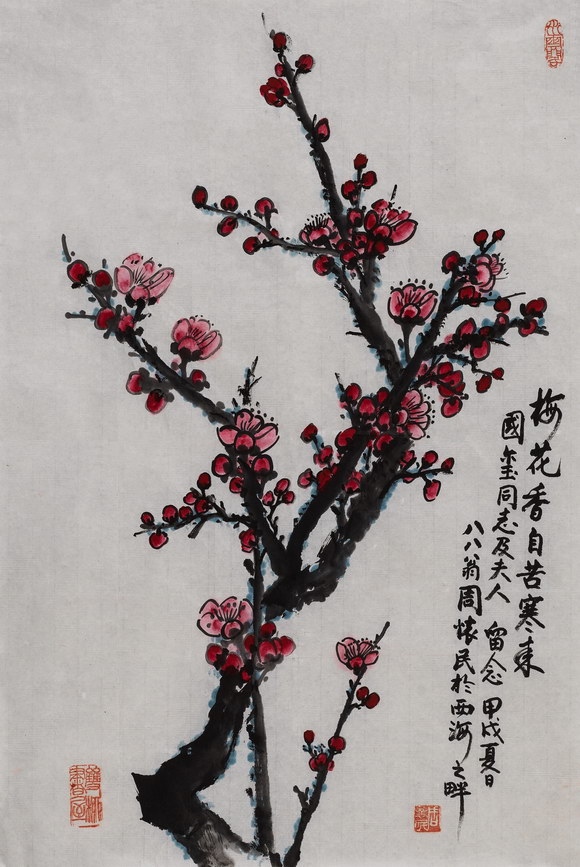 梅花香自苦寒来
國玺同志及夫人 留念 甲戌夏日
八八翁周懷民於西海之畔